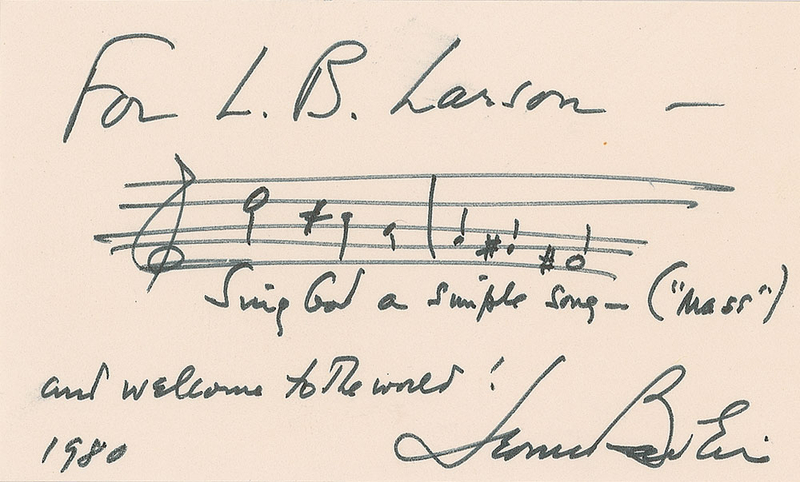 For L. B. Larson —
Sing God a simple song — ("Mass")
and welcome to the world!
1980 Leonard Bernstein